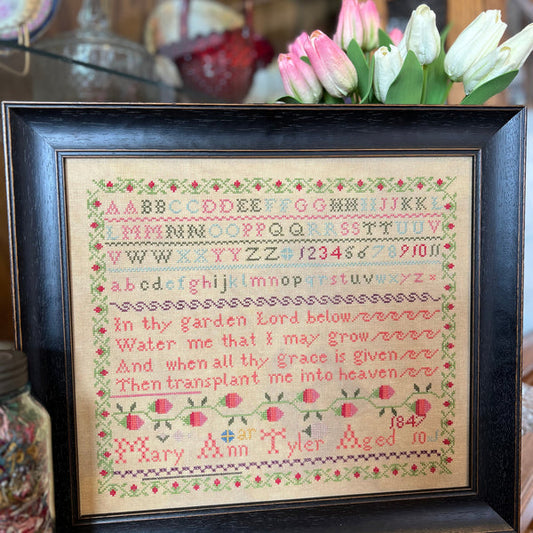 AABBCCDDEEFFGGHHIJJKKL
LMMNNOOPPQQRRSSTTUUV
VWWXXYYZZ 1234567891011
abcdefghijklmnopqrstuvwxyz
In thy garden Lord below
Water me that I may grow
And when all thy grace is given
Then transplant me into heaven
184
Mary Ann Tyler Aged 10